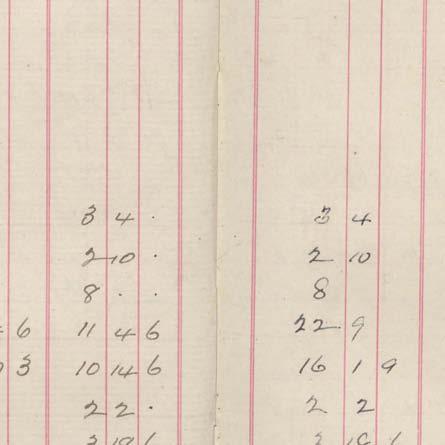 3 4 · 3 4
2 10 · 2 10
8 · · 8
6 11 4 6 22 9
3 10 14 6 16 1 9
2 2 · 2 2